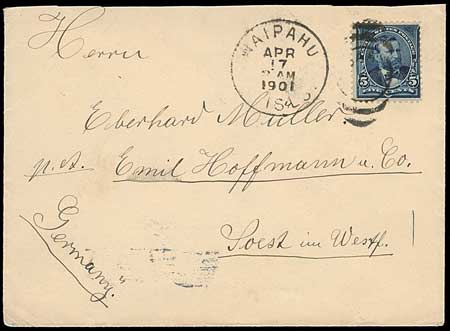 Herrn
WAIPAHU
APR
17
AM
1901
5 5
Eberhard Müller.
p. A. Emil Hoffmann u. Co.
Soest im Westf.
Germany.